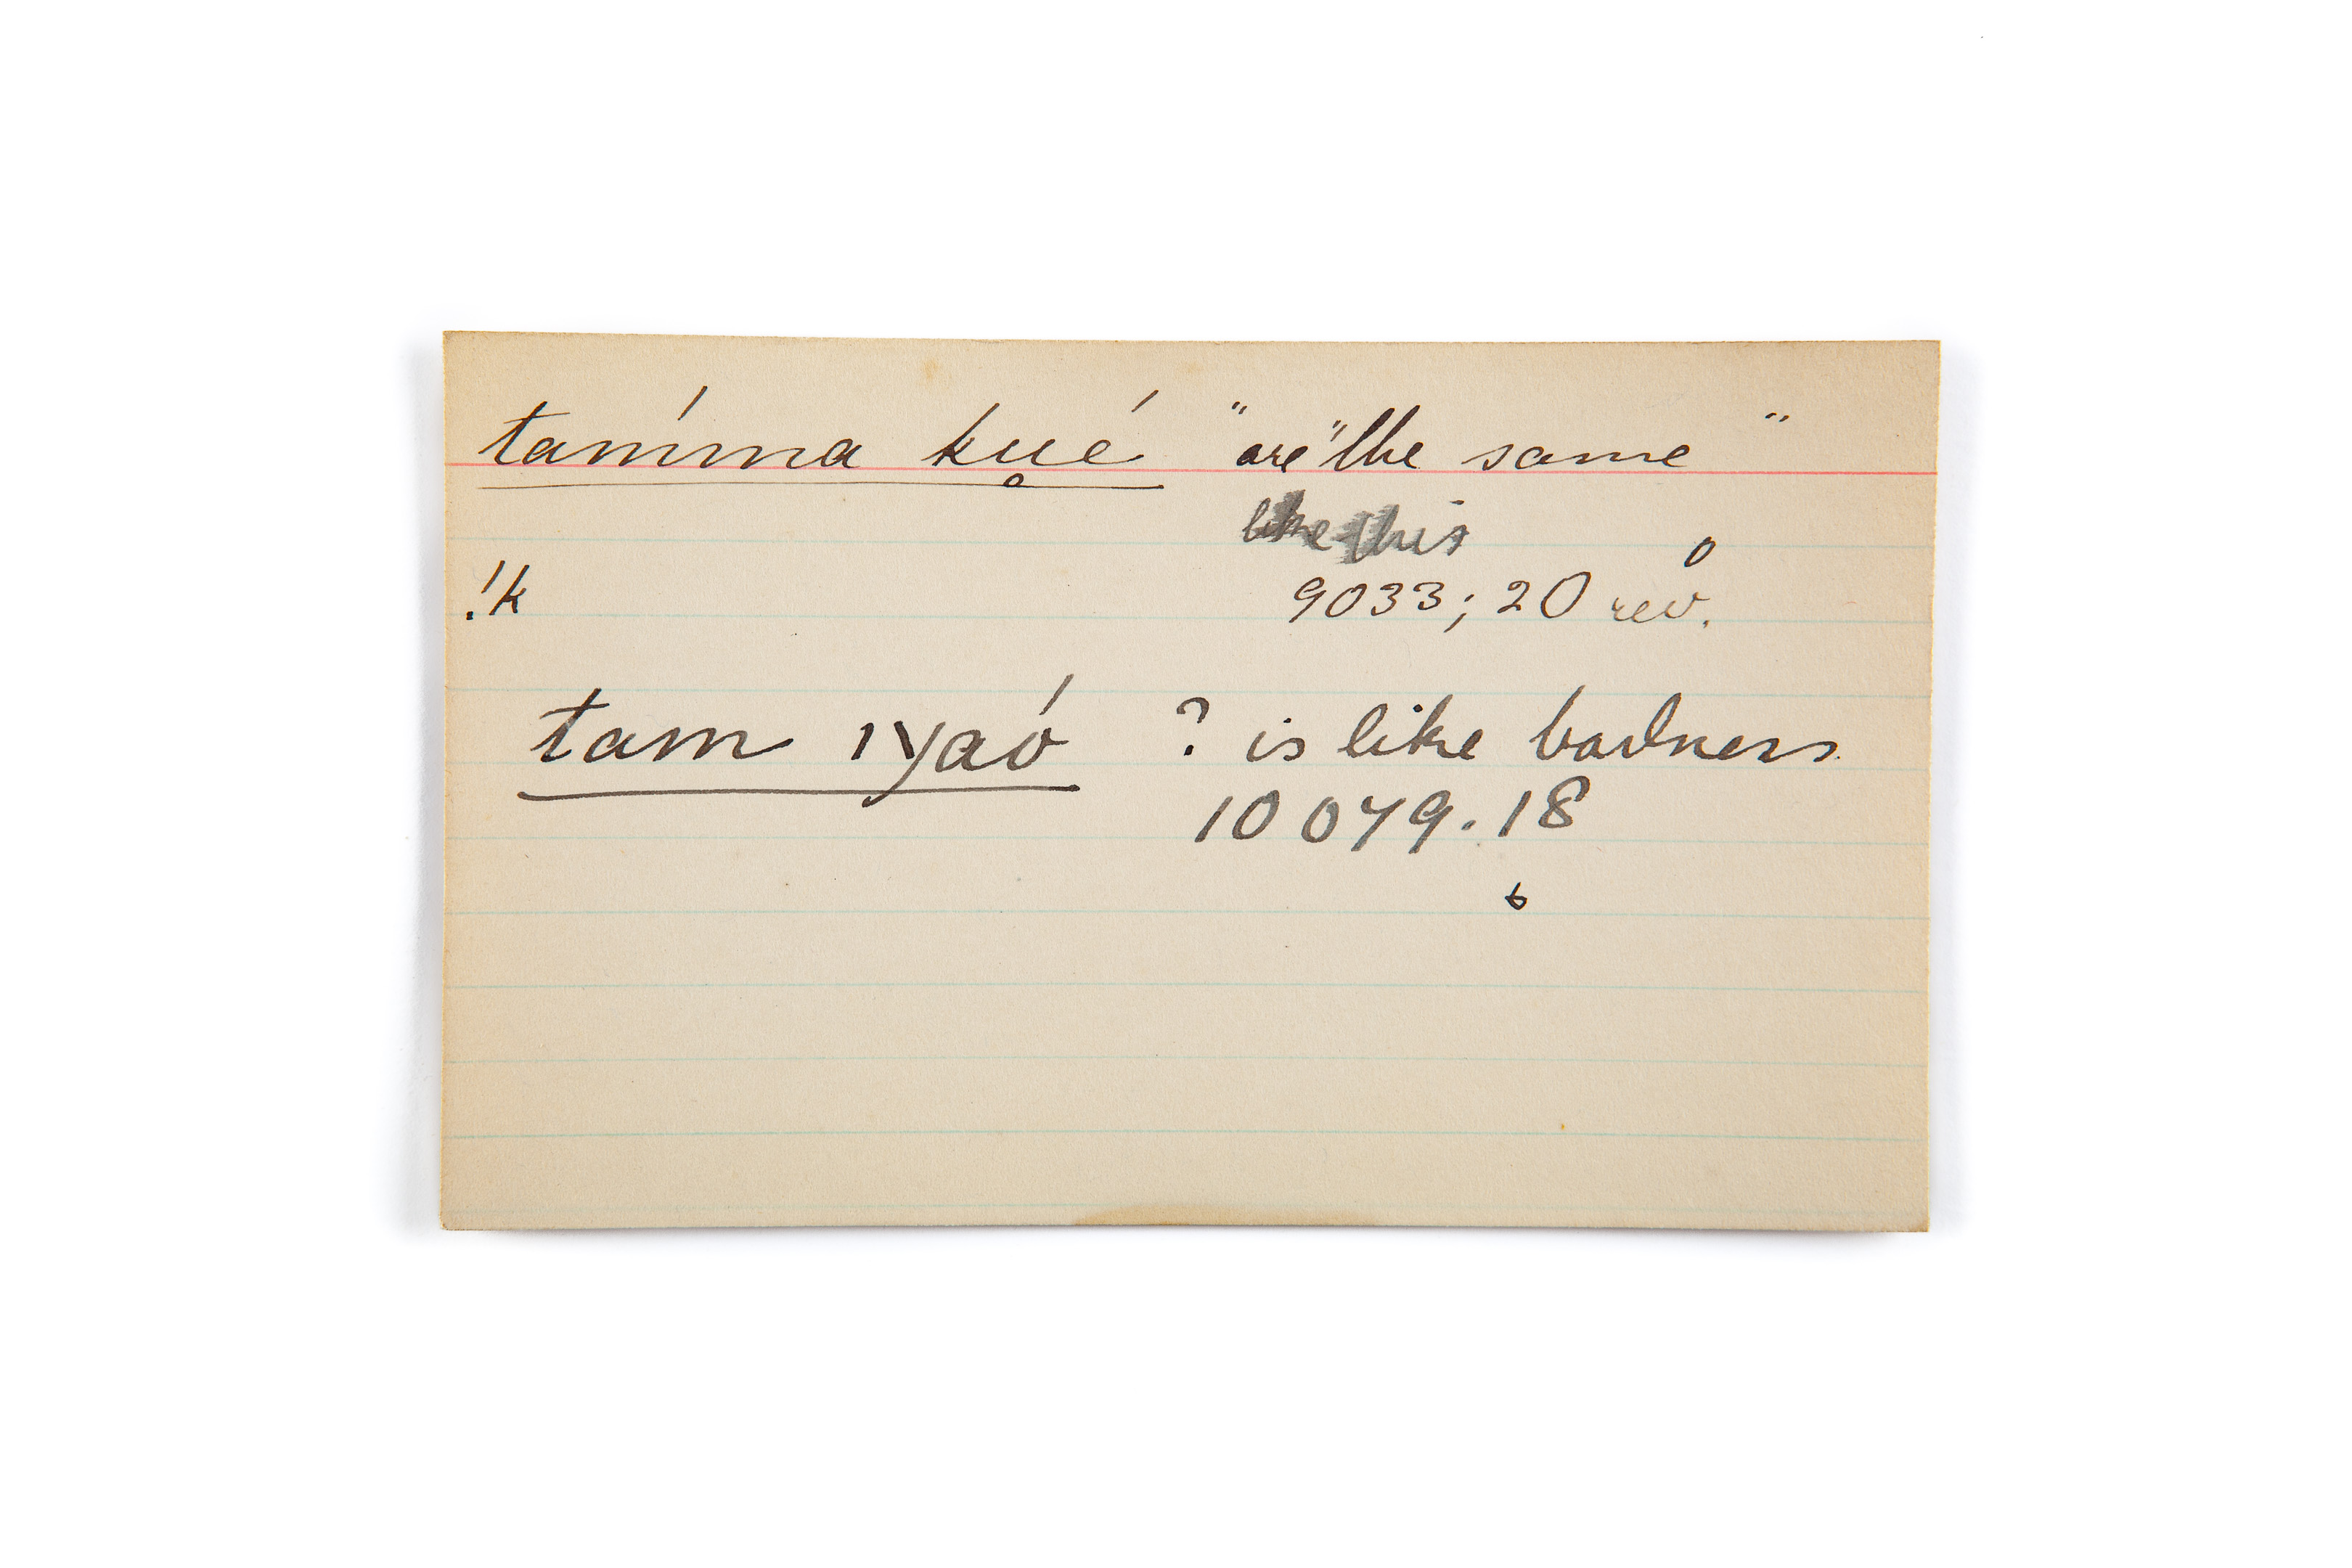 tamma kụé "are" the same"
like this
!k 9033; 20 rev.
tam ıyaó ? is like badness
10079.18